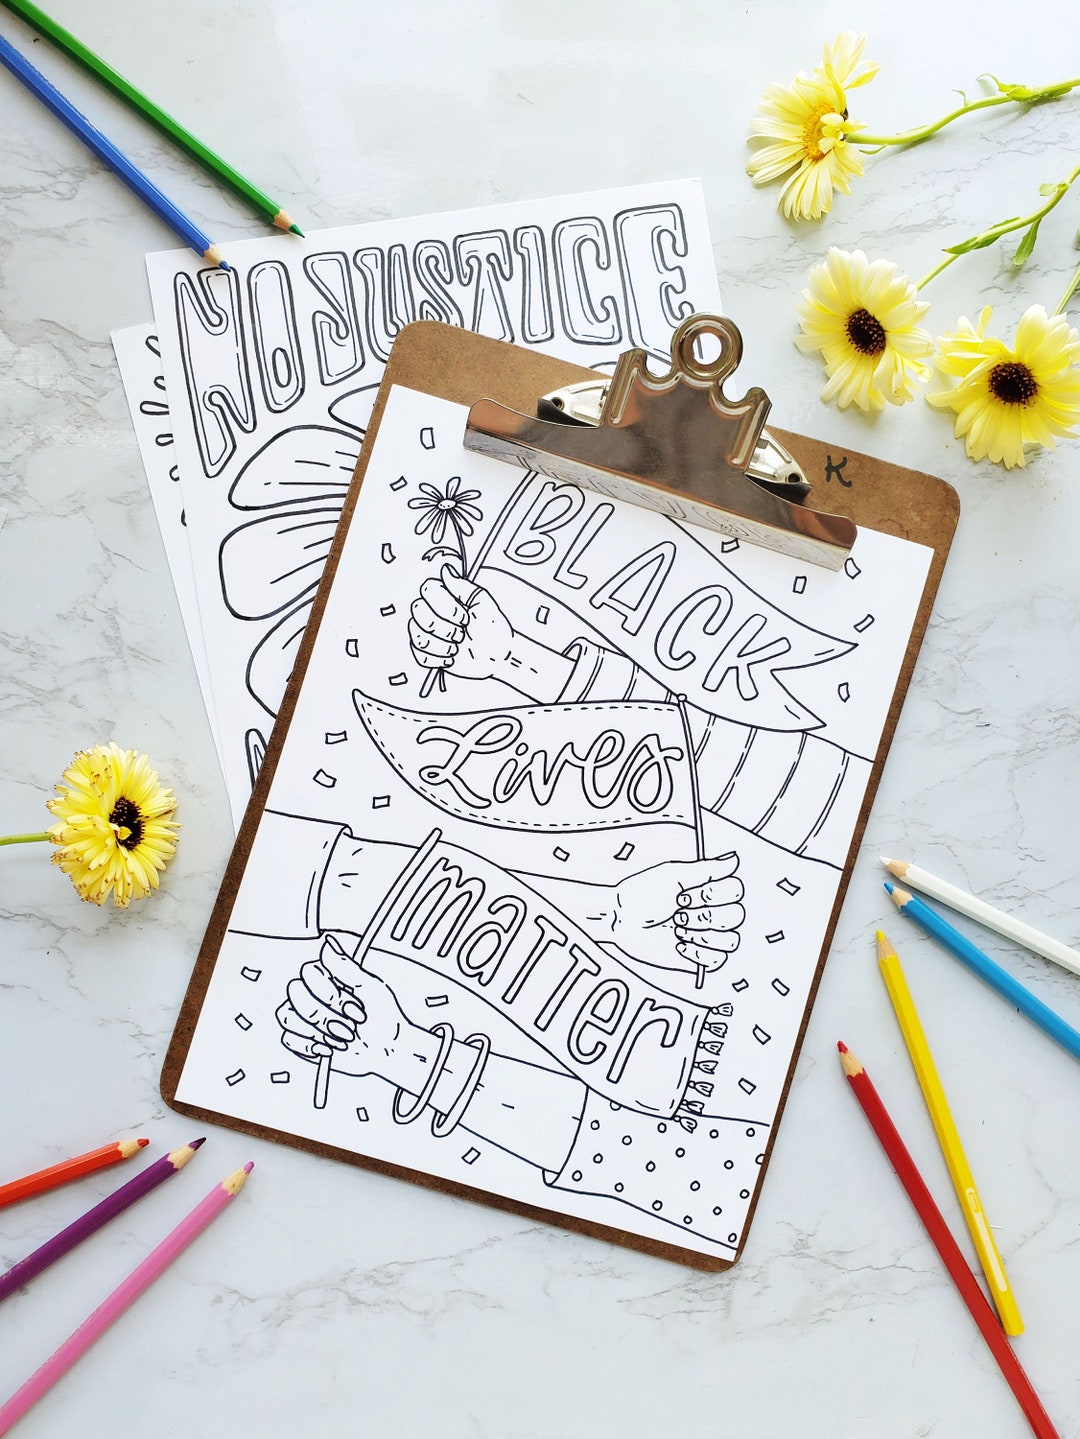 NO JUSTICE
K
BLACK
Lives
maTTer